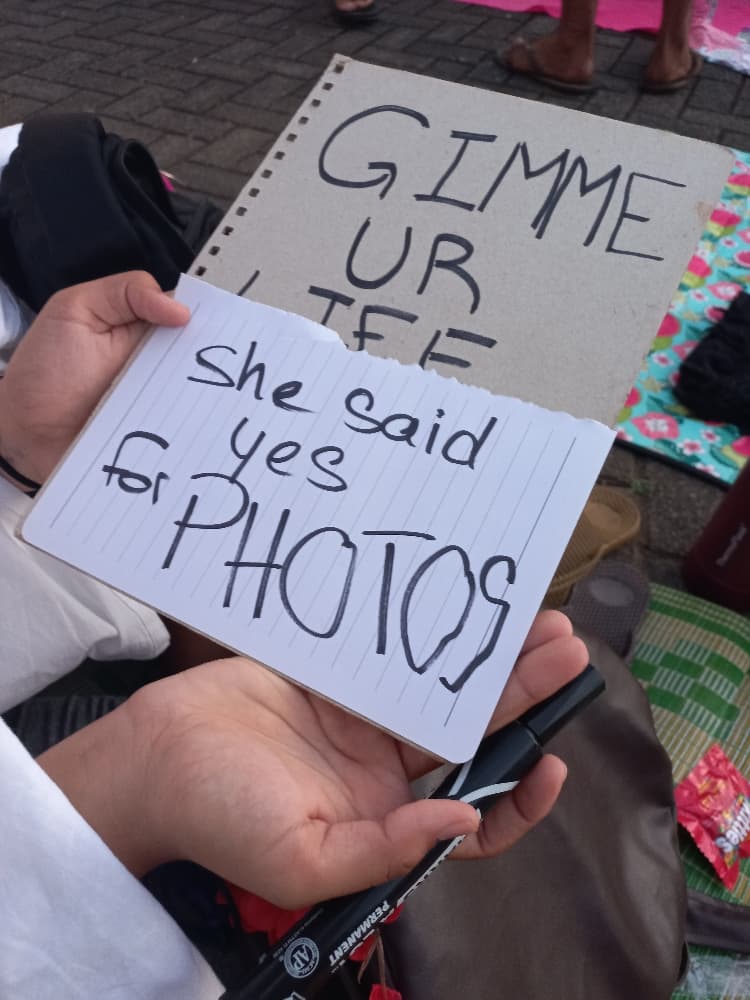 GIMME
UR
LIFE
She said
yes
for PHOTOS
PERMANENT
AP